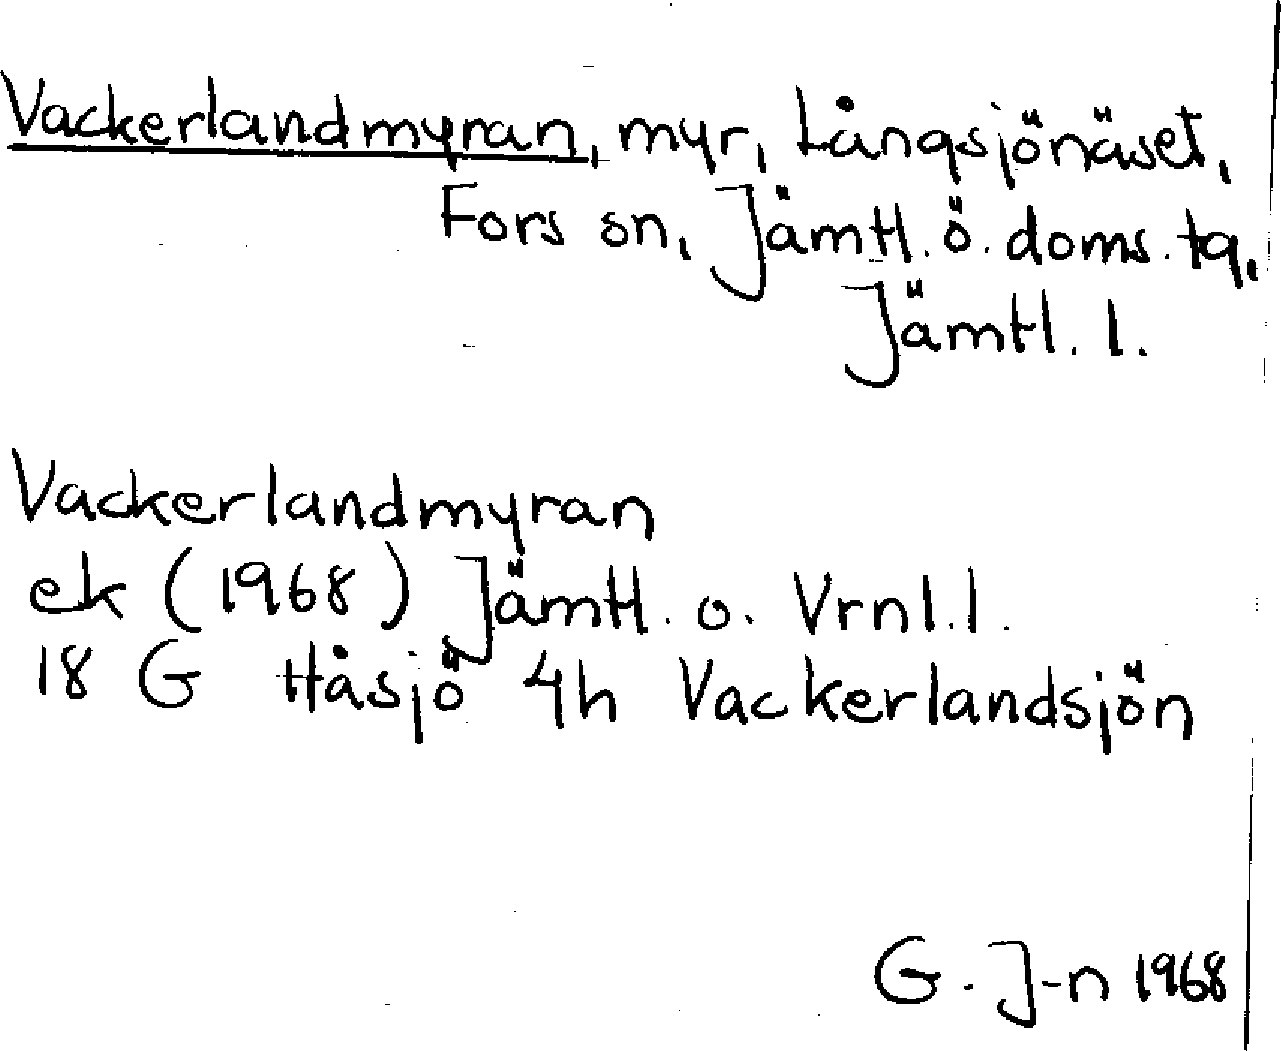 Vackerlandmyran, myr, Långsjönäset,
Fors sn, Jämtl. ö. doms. tg,
Jämtl. l.
Vackerlandmyran
ek (1968) Jämtl. o. Vrnl. l.
18 G Håsjö 4h Vackerlandsjön
G. J-n 1968